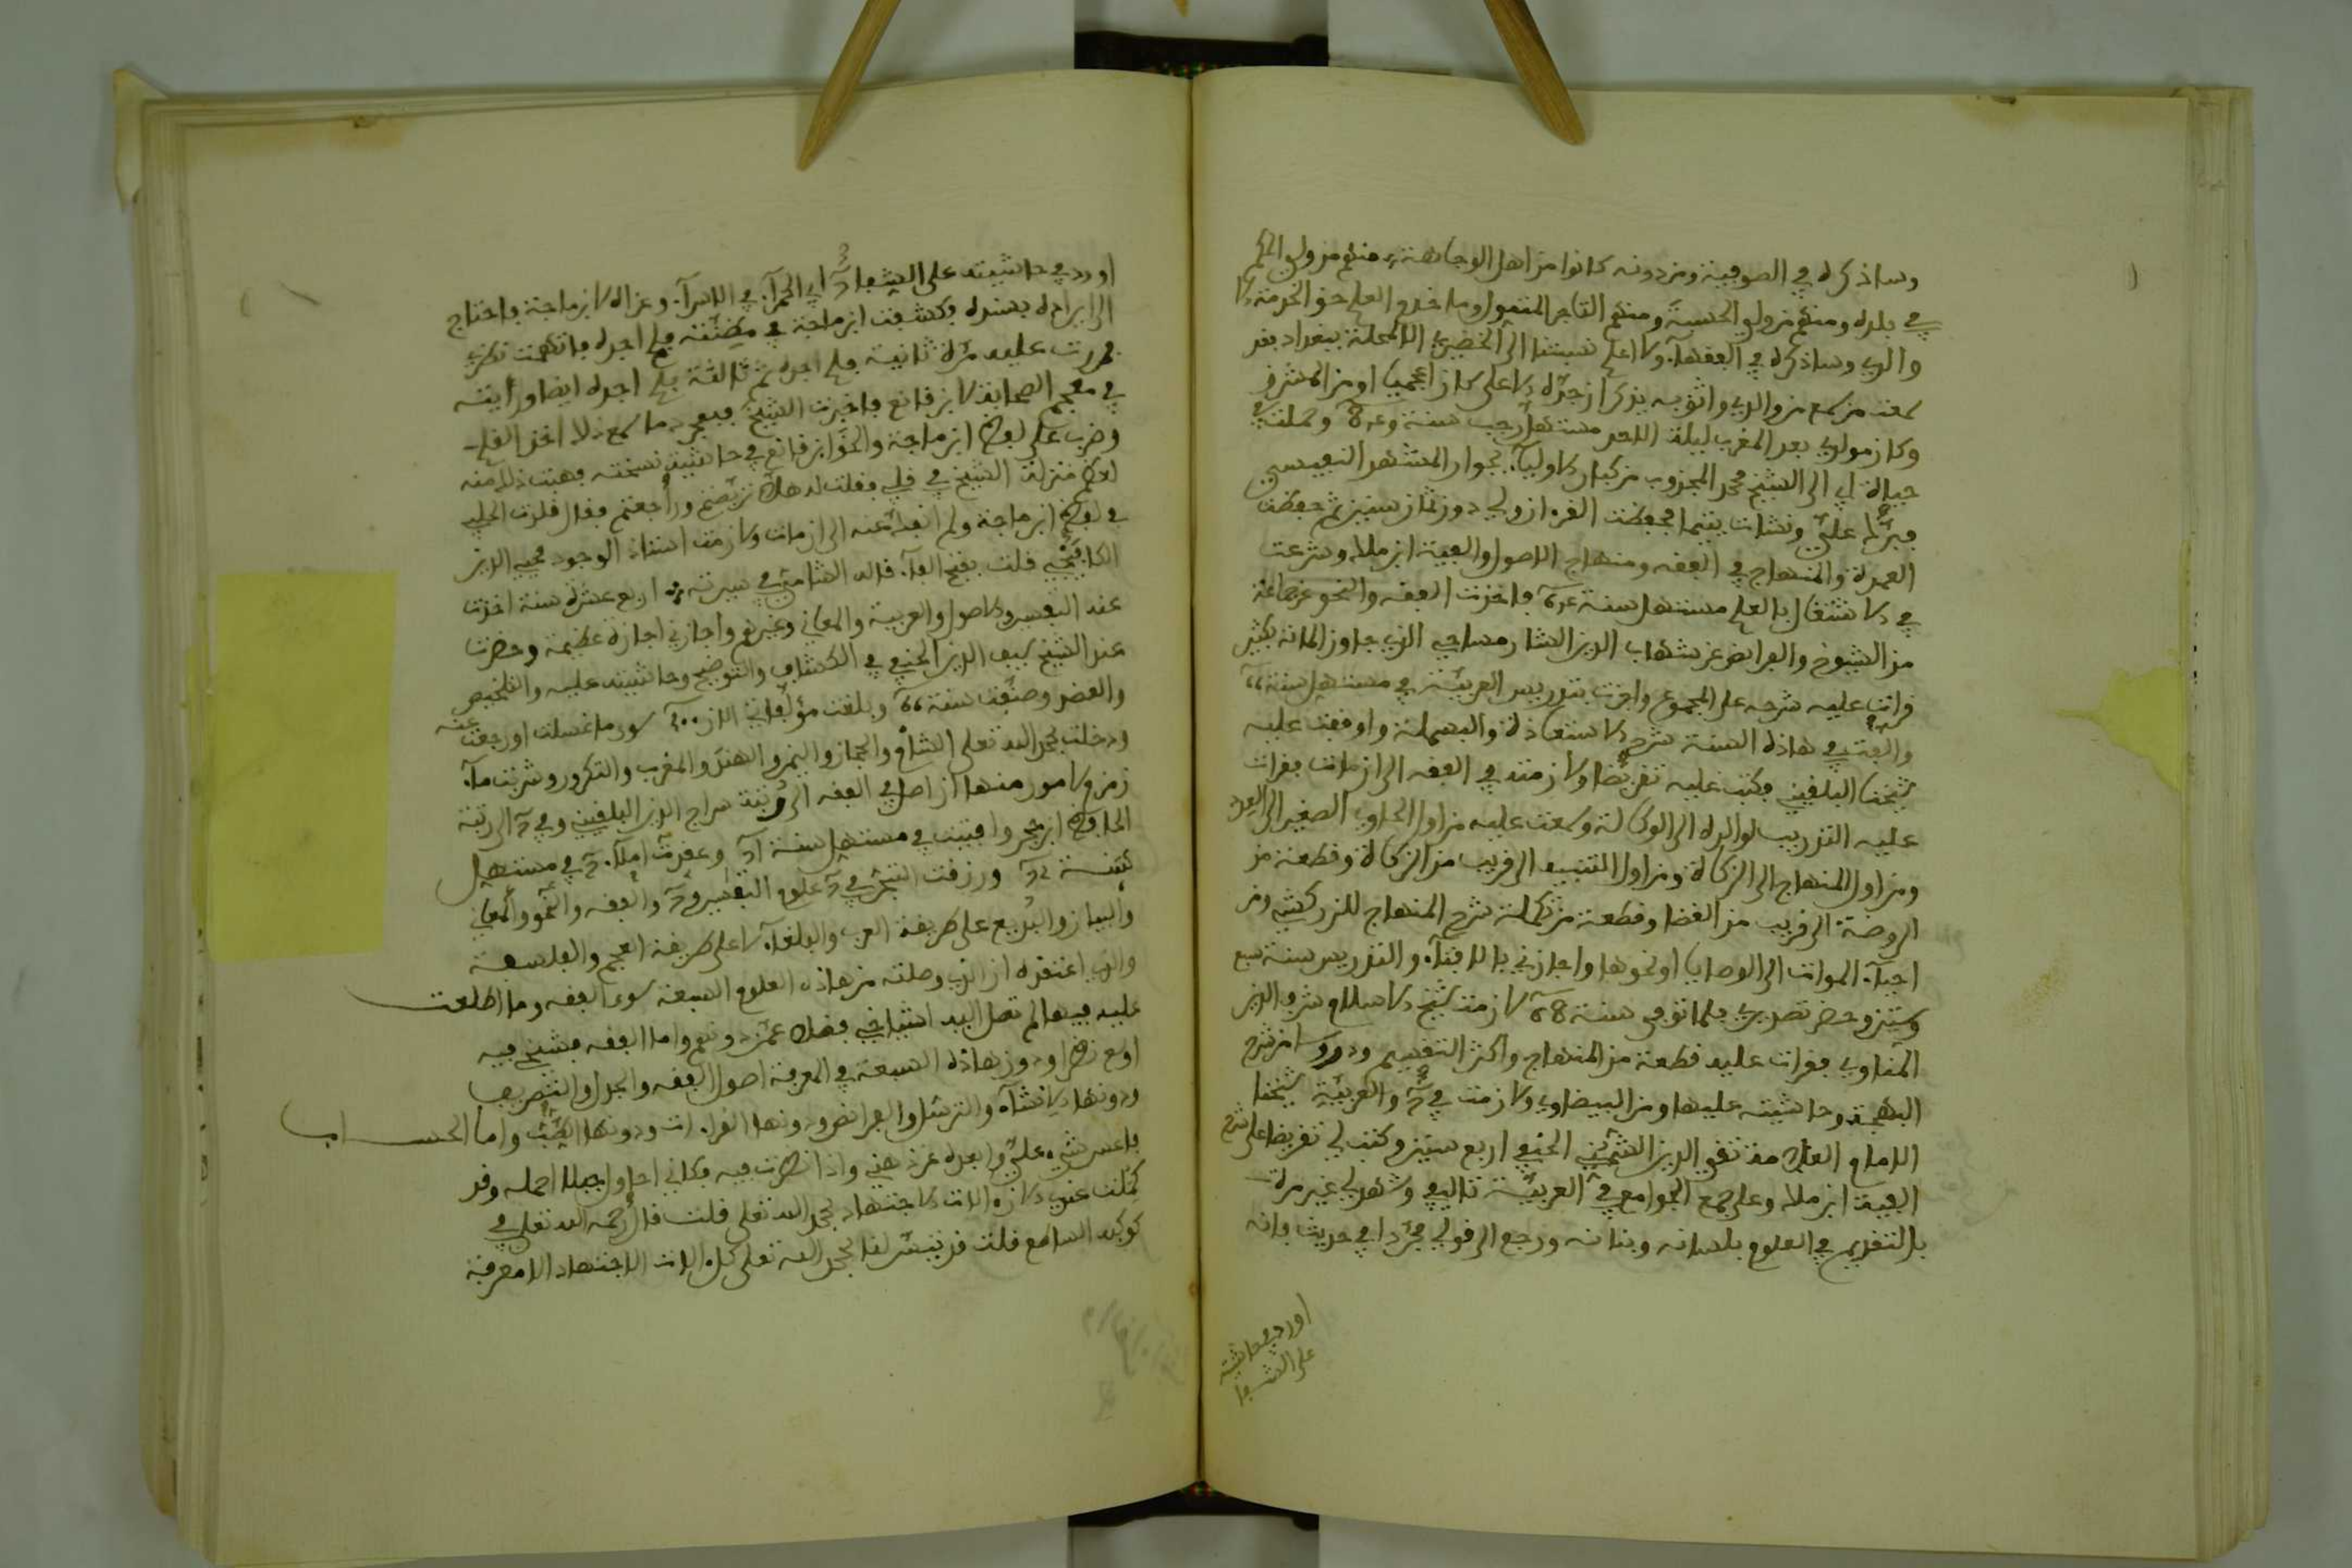 وساذكره في الصوفية ومن دونه كانوا من اهل الوجاهة، منهم من ولي الحكم
في بلده ومنهم من ولي الحسبة ومنهم التاجر المتمول وما خدم العلم حق الخدمة الا
والدي وساذكره في الفقهاء ولا اعلم نسبتنا الى الخضيري الا لمحلة ببغداد بعد
سمعت من سمع من والدي واثق به يذكر ان جده الاعلى كان اعجميا او من المشرق
وكان مولدي بعد المغرب ليلة الاحد مستهل رجب سنة وحملت في
حياة ابي الى الشيخ محمد المجذوب من كبار الاولياء بجوار المشهد النفيسي
فبرك علي ونشات يتيما فحفظت القرءان ولي دون ثمان سنين ثم حفظت
العمدة والمنهاج في الفقه ومنهاج الاصول والفية ابن ملك وشرعت
في الاشتغال بالعلم مستهل سنة فاخذت الفقه والنحو عن جماعة
من الشيوخ والفرايض عن شهاب الدين الشارمساحي الذي جاوز المائة بكثير
قرات عليه شرحه على المجموع واجزت بتدريس العربية في مستهل سنة
والفت في هاذه السنة شرح الاستعاذة والبسملة واوقفت عليه
شيخنا البلقيني فكتب عليه تقريظا ولازمته في الفقه الى ان مات فقرات
عليه التدريب لوالده الى الوكالة وسمعت عليه من اول الحاوي الصغير الى العدد
ومن اول المنهاج الى الزكاة ومن اول التنبيه الى قريب من الزكاة وقطعة من
الروضة الى قريب من القضا وقطعة من تكملة شرح المنهاج للزركشي ومن
احياء الموات الى الوصايا او نحوها واجازني بالافتاء والتدريس سنة سبع
وسبعين وحضر تصديري فلما توفي سنة لازمت شيخ الاسلام شرف الدين
المناوي فقرات عليه قطعة من المنهاج واكثر التقسيم ودروسا من شرح
البهجة وحاشيته عليها ومن البيضاوي ولازمت في والعربية شيخنا
الامام العلامة تقي الدين الشمني الحنفي اربع سنين وكتب لي تقريظا على شرح
الفية ابن ملك وعلى جمع الجوامع في العربية تاليفي وشهد لي غير مرة
بالتقديم في العلوم بلسانه وبنانه ورجع الى قولي مجردا في حديث فانه
اورد في حاشيته
على الشفا
اورد في حاشيته على الشفا ابي الحمراء في الاسراء وعزاه لابن ماجة فاحتاج
الى ايراده بسنده فكشفت ابن ماجة في مظنته فلم اجده فاتهمت نظري
فمررت عليه مرة ثانية فلم اجده ثم ثالثة فلم اجده ايضا ورايته
في معجم الصحابة لابن قانع فاخبرت الشيخ فبمجرد ما سمع ذلك اخذ القلم
وضرب على لفظ ابن ماجة والحق ابن قانع في حاشية نسخته فهبت ذلك منه
لعظم منزلة الشيخ في قلبي فقلت له هلا تربصتم وراجعتم فقال قلدت الحلبي
في لفظ ابن ماجة ولم انفك عنه الى ان مات ولازمت استاذ الوجود محيي الدين
الكافيجي قلت بفتح الفاء قاله الشامي في سيرته اربع عشرة سنة اخذت
عنه التفسير والاصول والعربية والمعاني وغيرهم واجازني اجازة عظيمة وحضرت
عند الشيخ سيف الدين الحنفي في الكشاف والتوضيح وحاشيته عليه والتلخيص
والعضد وصنفت سنة وبلغت مؤلفاتي الان سوى ما غسلت او رجعت عنه
ودخلت بحمد الله تعلى الشام والحجاز واليمن والهند والمغرب والتكرور وشربت ماء
زمزم لامور منها ان اصل في الفقه الى رتبة سراج الدين البلقيني وفي الى رتبة
الحافظ ابن حجر وافتيت في مستهل سنة وعقدت املاء في مستهل
سنة ورزقت التبحر في علوم التفسير و والفقه والنحو والمعاني
والبيان والبديع على طريقة العرب والبلغاء لا على طريقة العجم والفلاسفة
والذي اعتقده ان الذي وصلته من هاذه العلوم السبعة سوى الفقه وما اطلعت
عليه فيها لم تصل اليه اشياخي فضلا عمن دونهم واما الفقه فشيخي فيه
اوسع نظرا ودون هاذه السبعة في المعرفة اصول الفقه والجدل والتصريف
ودونها الانشاء والترسل والفرايض ودونها القراءات ودونها الطب واما الحساب
فاعسر شيء علي وابعده عن ذهني واذا نظرت فيه فكاني احاول جبلا احمله وقد
كملت عندي الان ءالات الاجتهاد بحمد الله تعلى قلت قال رحمه الله تعلى في
كوكبه الساطع قلت قد تيسر لنا بحمد الله تعلى كل ءالات الاجتهاد الا معرفة